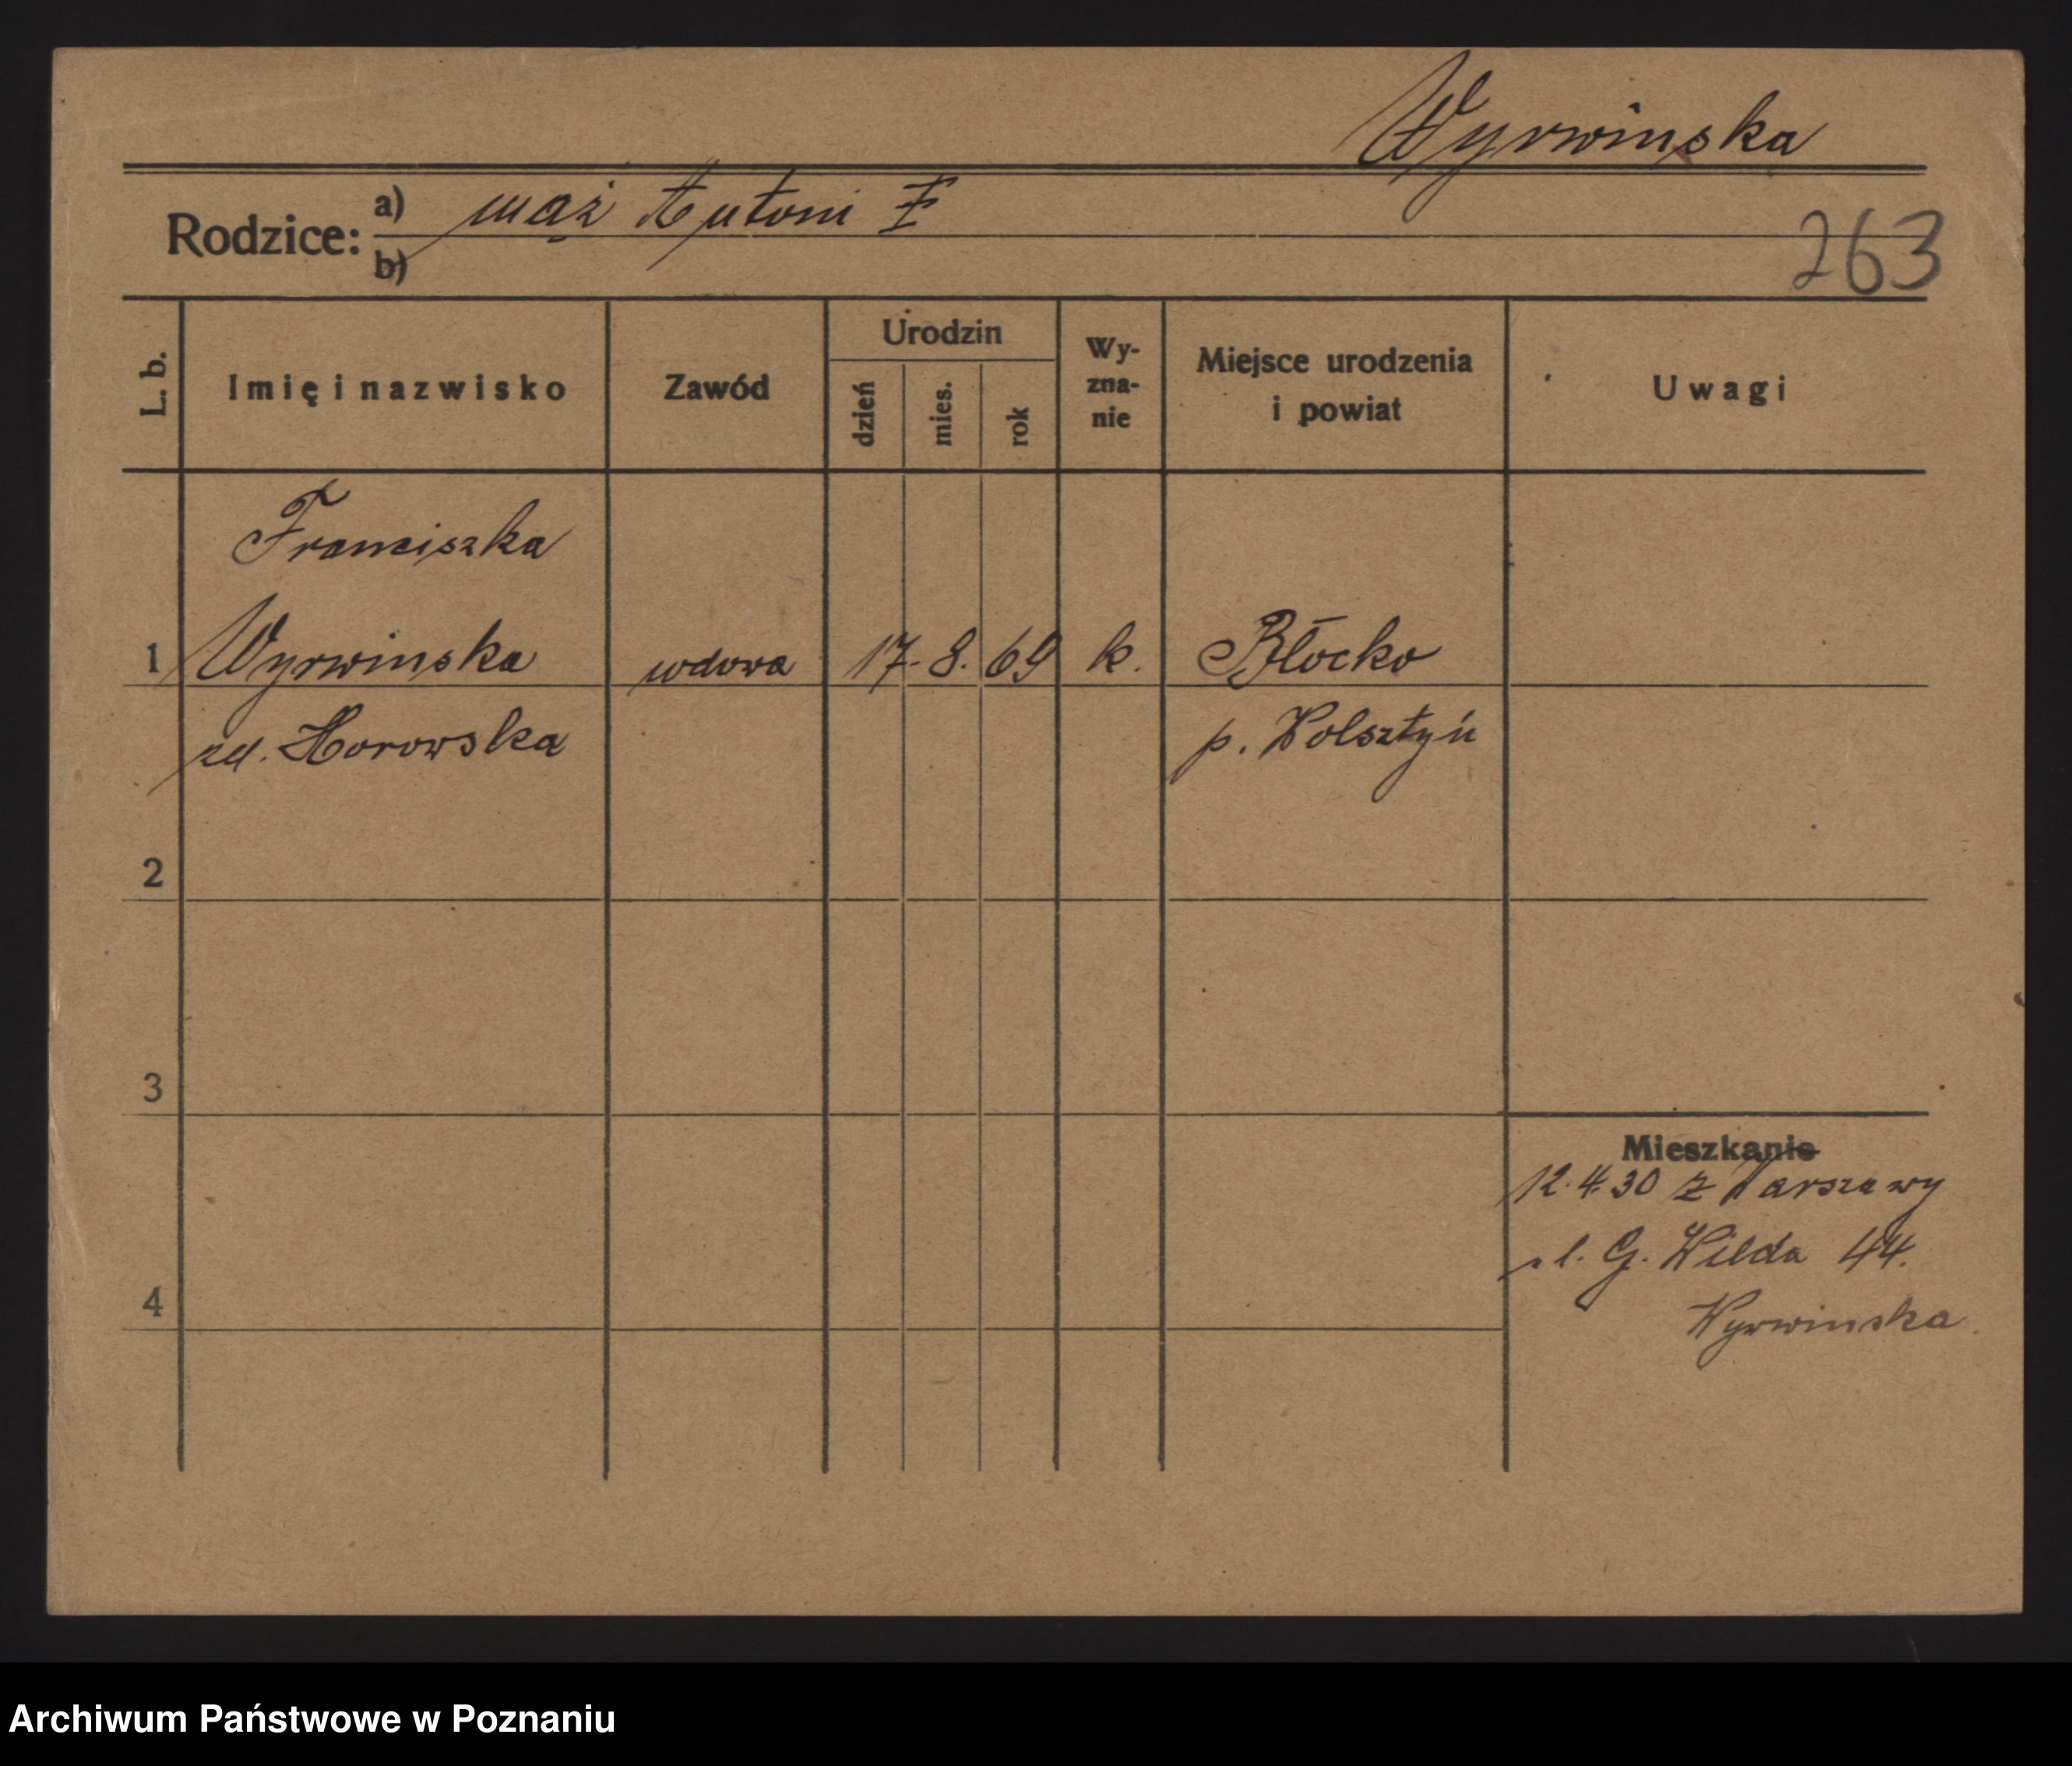 Wyrwinska
Rodzice: a) mąż Antoni
b)
263
L. b.
Imię i nazwisko
Zawód
Urodzin
dzień
mies.
rok
Wy-
zna-
nie
Miejsce urodzenia
i powiat
Uwagi
Franciszka
1 Wyrwinska wdowa 17. 8. 69 k. Błocko
zd. Horowska p. Wolsztyń
2
3
Mieszkanie
12.4.30 z Warszawy
ul. G. Wilda 44.
4
Wyrwinska
Archiwum Państwowe w Poznaniu